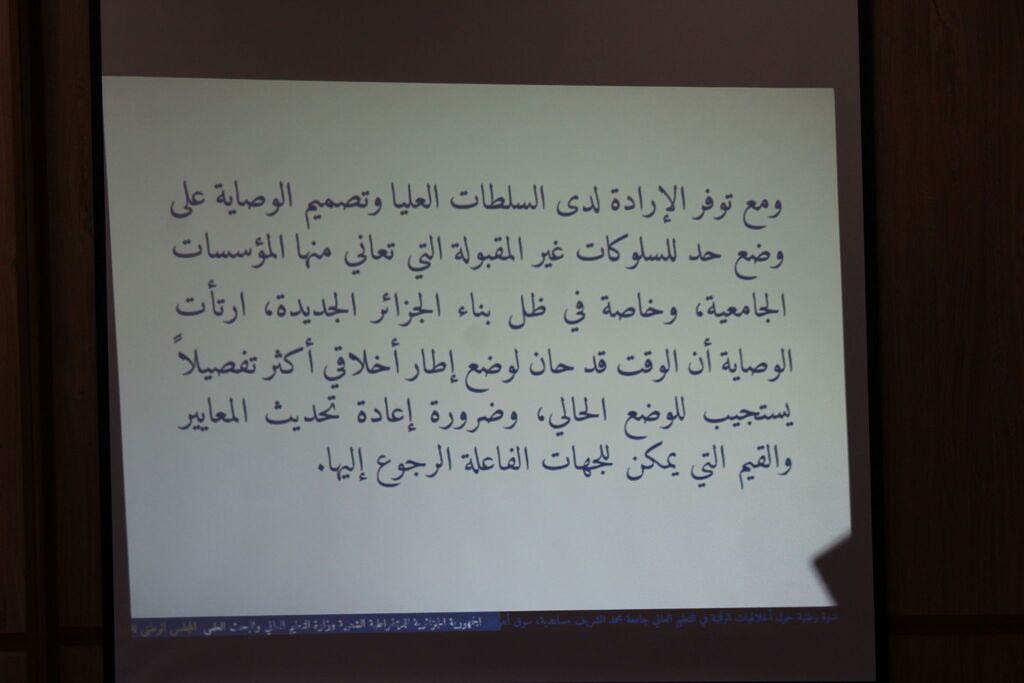 ومع توفر الإرادة لدى السلطات العليا وتصميم الوصاية على
وضع حد للسلوكات غير المقبولة التي تعاني منها المؤسسات
الجامعية، وخاصة في ظل بناء الجزائر الجديدة، ارتأت
الوصاية أن الوقت قد حان لوضع إطار أخلاقي أكثر تفصيلاً
يستجيب للوضع الحالي، وضرورة إعادة تحديث المعايير
والقيم التي يمكن للجهات الفاعلة الرجوع إليها.
ندوة وطنية حول أخلاقيات الرقمنة في التعليم العالي جامعة محمد الشريف مساعدية، سوق الجمهورية الجزائرية الديمقراطية الشعبية وزارة التعليم العالي والبحث العلمي المجلس الوطني